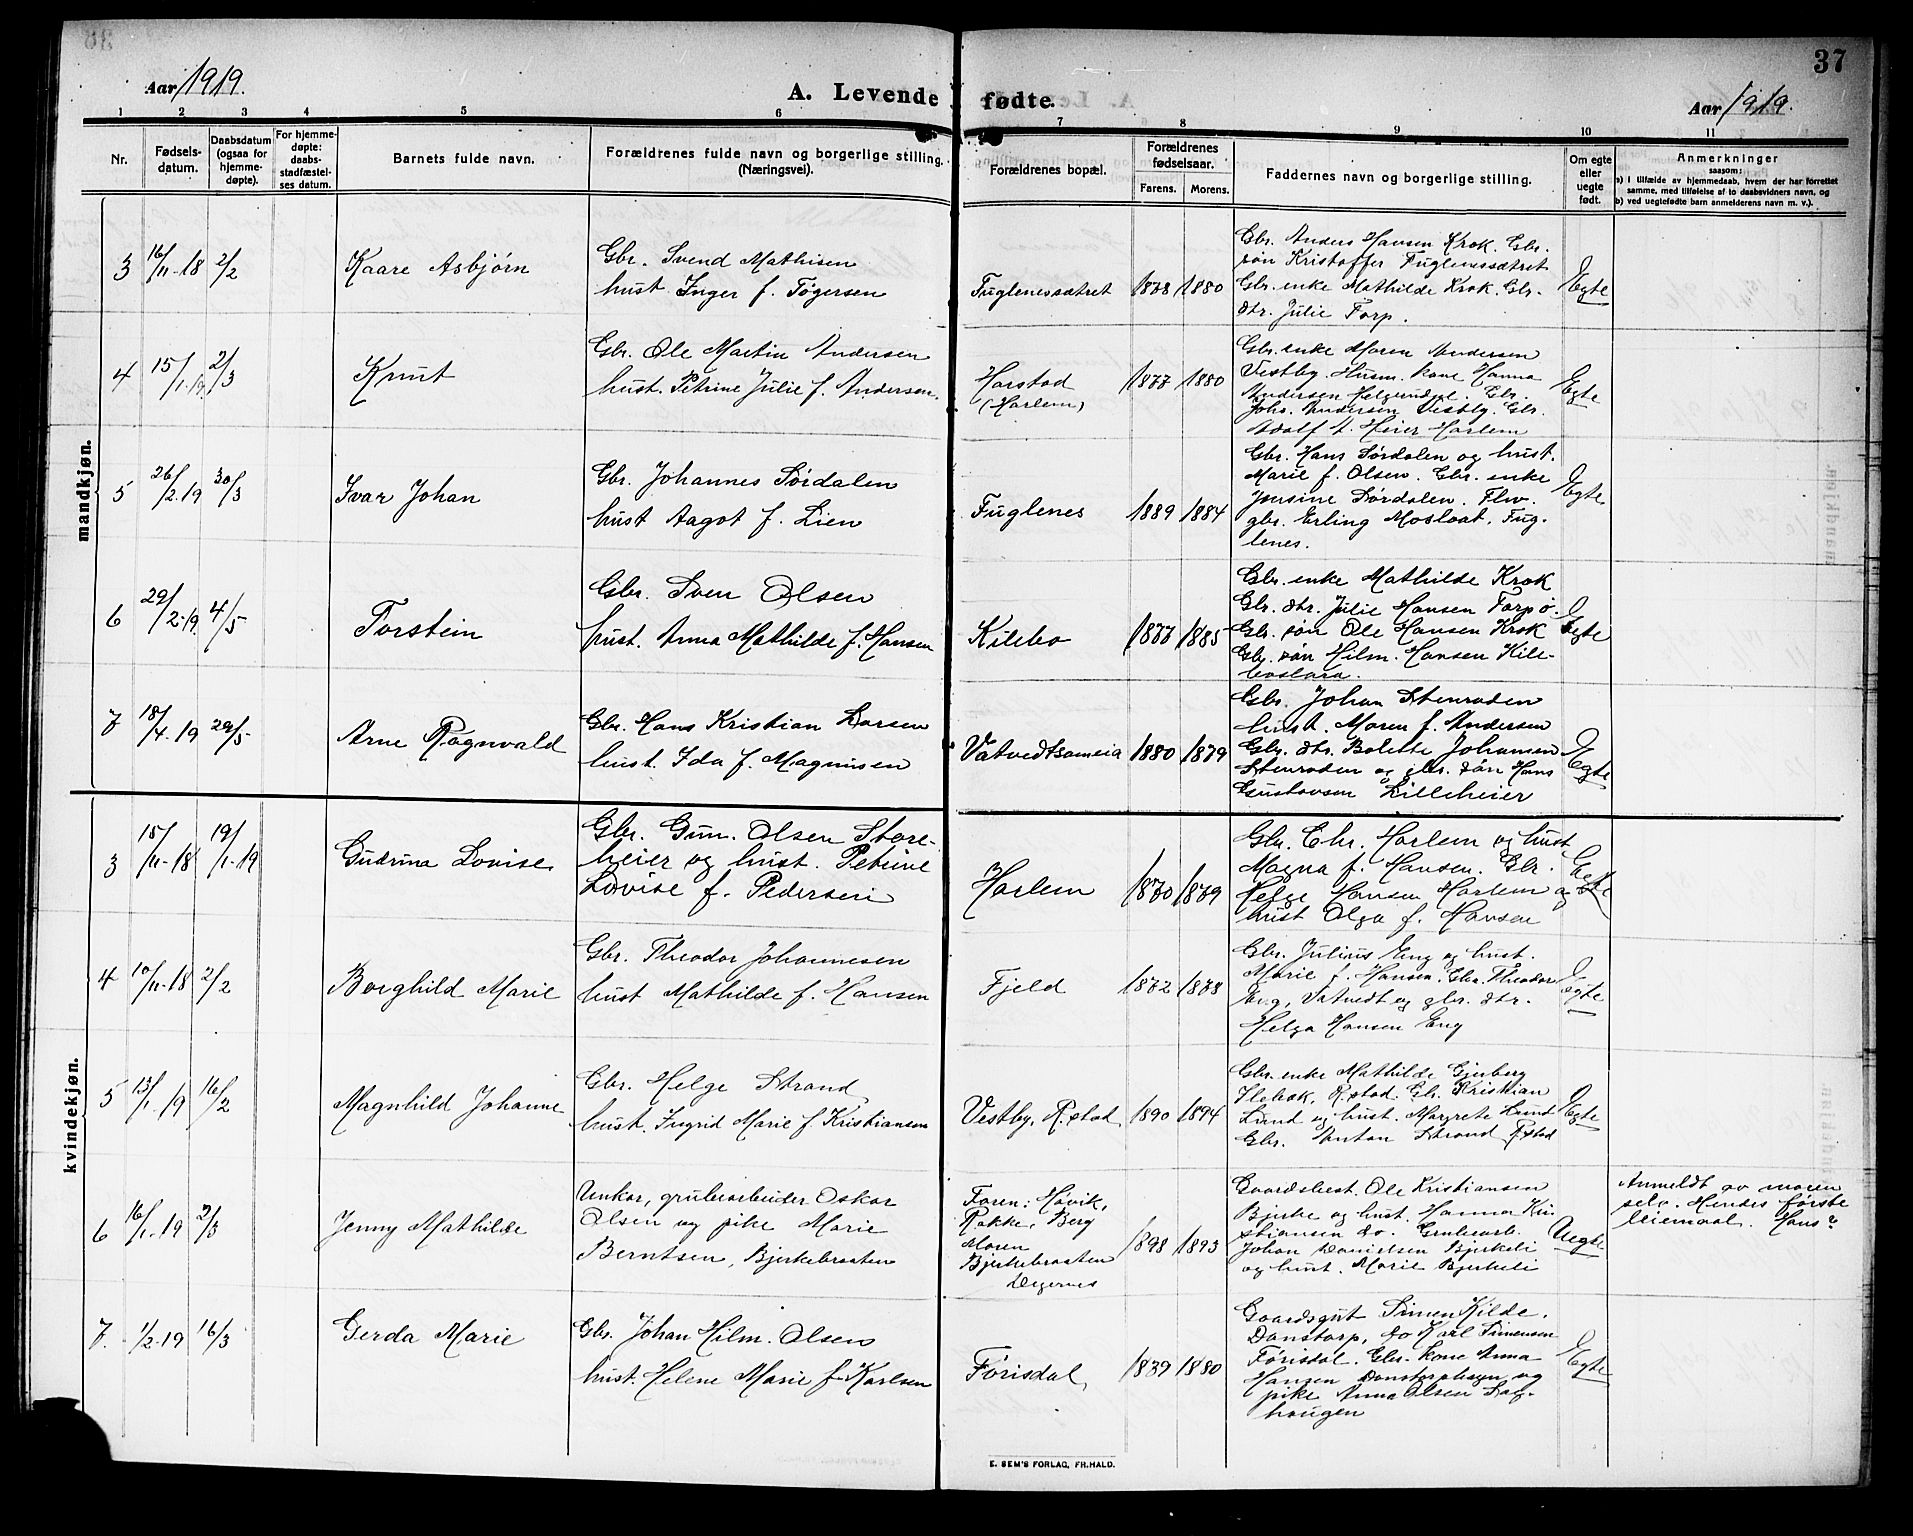 37
Aar 1919.
A. Levende fødte.
Aar 1919.
1 2 3 4 5 6 7 8 9 10 11
Nr.
Fødsels-
datum.
Daabsdatum
(ogsaa for
hjemme-
døpte).
For hjemme-
døpte:
daabs-
stadfæstel-
ses datum.
Barnets fulde navn.
Forældrenes fulde navn og borgerlige stilling.
(Næringsvei).
Forældrenes bopæl.
Forældrenes
fødselsaar.
Farens. Morens.
Faddernes navn og borgerlige stilling.
Om egte
eller
uegte
født.
Anmerkninger
saasom:
a) i tilfælde av hjemmedaab, hvem der har forrettet
samme, med tilføielse af to daabsvidners navn, og
b) ved uegtefødte barn anmelderens navn m. v.).
mandkjøn.
3 16/11-18 2/2
Kaare Asbjørn
Gbr. Svend Mathisen
hust. Inger f. Tøgersen
Fuglenessætret
1878 1880
Gbr. Anders Hansen Krok. Gbr.
søn Kristoffer Fuglenessætret
Gbr. enke Mathilde Krok. Gbr.
dtr. Julie Torp.
Egte
4 15/1.19 2/3
Knut
Gbr. Ole Martin Andersen
hust. Petrine Julie f. Andersen.
Harstad
(Harlem)
1877 1880
Gbr. enke Maren Andersen
Vestby. Husm. kone Hanna
Andersen Gbr.
Johs. Andersen Vestby. Gbr.
Adolf A. Heier Harlem
Egte
5 26/2.19 30/3
Ivar Johan
Gbr. Johannes Sørdalen
hust Aagot f. Lien
Fuglenes
1889 1884
Gbr. Hans Sørdalen og hust.
Marie f. Olsen. Gbr. enke
Jensine Sørdalen. Flw.
gbr. Erling Mosloat. Fug-
lenes.
Egte
6 29/2.19 4/5
Torstein
Gbr. Sven Olsen
hust. Anna Mathilde f. Hansen
Kilebo
1877 1885
Gbr. enke Mathilde Krok
Gbr. dtr. Julie Hansen Torpø.
Gbr. søn Ole Hansen Krok
Gbr. søn Hilm. Hansen Kile-
Egte
7 18/4.19 29/5
Arne Ragnvald
Gbr. Hans Kristian Larsen
hust. Ida f. Magnusen
Vatvedtsameia
1880 1879
Gbr. Johan Stenroden
hust. Maren f. Andersen
Gbr. dtr. Bolette Johansen
Stenroden og gbr. søn Hans
Gustavsen Lilleheier
Egte
kvindekjøn.
3 15/11-18 19/1-19
Gudruna Lovise
Gbr. Gun. Olsen Store-
heier og hust. Petrine
Lovise f. Pedersen
Harlem
1870 1879
Gbr. Chr. Harlem og hust
Magna f. Hansen. Gbr.
Helge Hansen Harlem og
hust Olga f. Hansen
Egte
4 10/11-18 2/2
Borghild Marie
Gbr. Theodor Johannesen
hust Mathilde f. Hansen
Fjeld
1872 1878
Gbr. Julius Eng og hust.
Marie f. Hansen. Gbr. Theodor
Eng, Vatvedt og gbr. dtr.
Helga Hansen Eng
Egte
5 13/1.19 16/2
Magnhild Johanne
Gbr. Helge Strand
hust. Ingrid Marie f Kristiansen
Vestby, R.stad
1890 1894
Gbr. enke Mathilde Gjeberg
Ilebæk, R.stad. Gbr. Kristian
Lund og hust. Margrete Lund
Gbr. Anton Strand R.stad
Egte
6 16/1.19 2/3
Jenny Mathilde
Unkar, grubearbeider Oskar
Olsen og pike Marie
Berntsen, Bjerkebraaten
Faren: Høvik,
Rakke, Berg
Moren
Bjerkebraaten
Degernes
1898 1893
Gaardsbest. Ole Kristiansen
Bjerke og hust. Hanna Kri-
stiansen do. Grubearb.
Johan Danielsen Bjerkeli
og hust. Marie Bjerkeli
Uegte
Anmeldt av moren
selv. Hendes første
leiemaal. Hans ?
7. 1/2-19 16/3
Gerda Marie
Gbr. Johan Hilm. Olsen
hust. Helene Marie f. Karlsen
Førisdal,
1879 1880
Gaardsgut Simen Kilde.
Danstorp, do Karl Simensen
Førisdal. Gbr. kone Anna
Hansen Danstorphagen og
pike Anna Olsen Dal-
haugen
Egte
E. SEM'S FORLAG, FR.HALD.